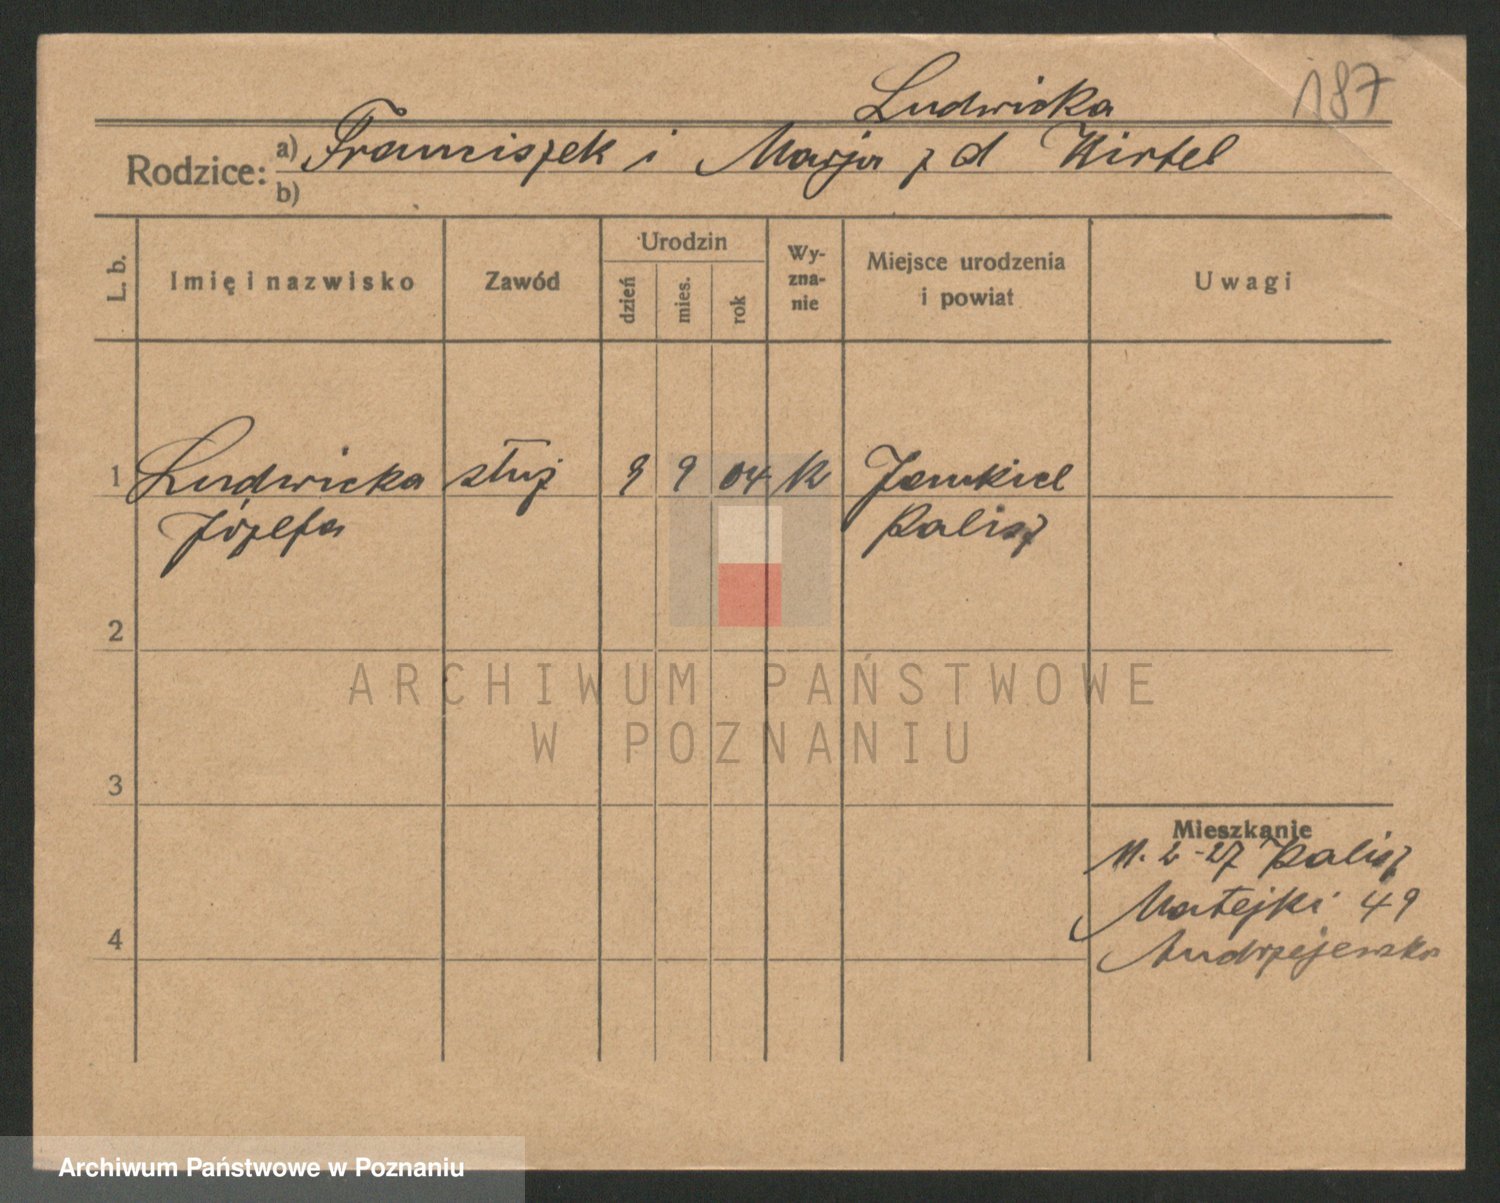 Ludwicka
187
Rodzice: a) Franciszek i Marja z d Wirtel
b)
L. b.
Imię i nazwisko
Zawód
Urodzin
dzień
mies.
rok
Wy-
zna-
nie
Miejsce urodzenia
i powiat
Uwagi
1 Ludwicka służ 9 9 04 rk
Józefa
Kalisz
2
3
4
Mieszkanie
11. 2 -27 Kalisz
Matejki 49
Andrzejewska
ARCHIWUM PAŃSTWOWE
W POZNANIU
Archiwum Państwowe w Poznaniu